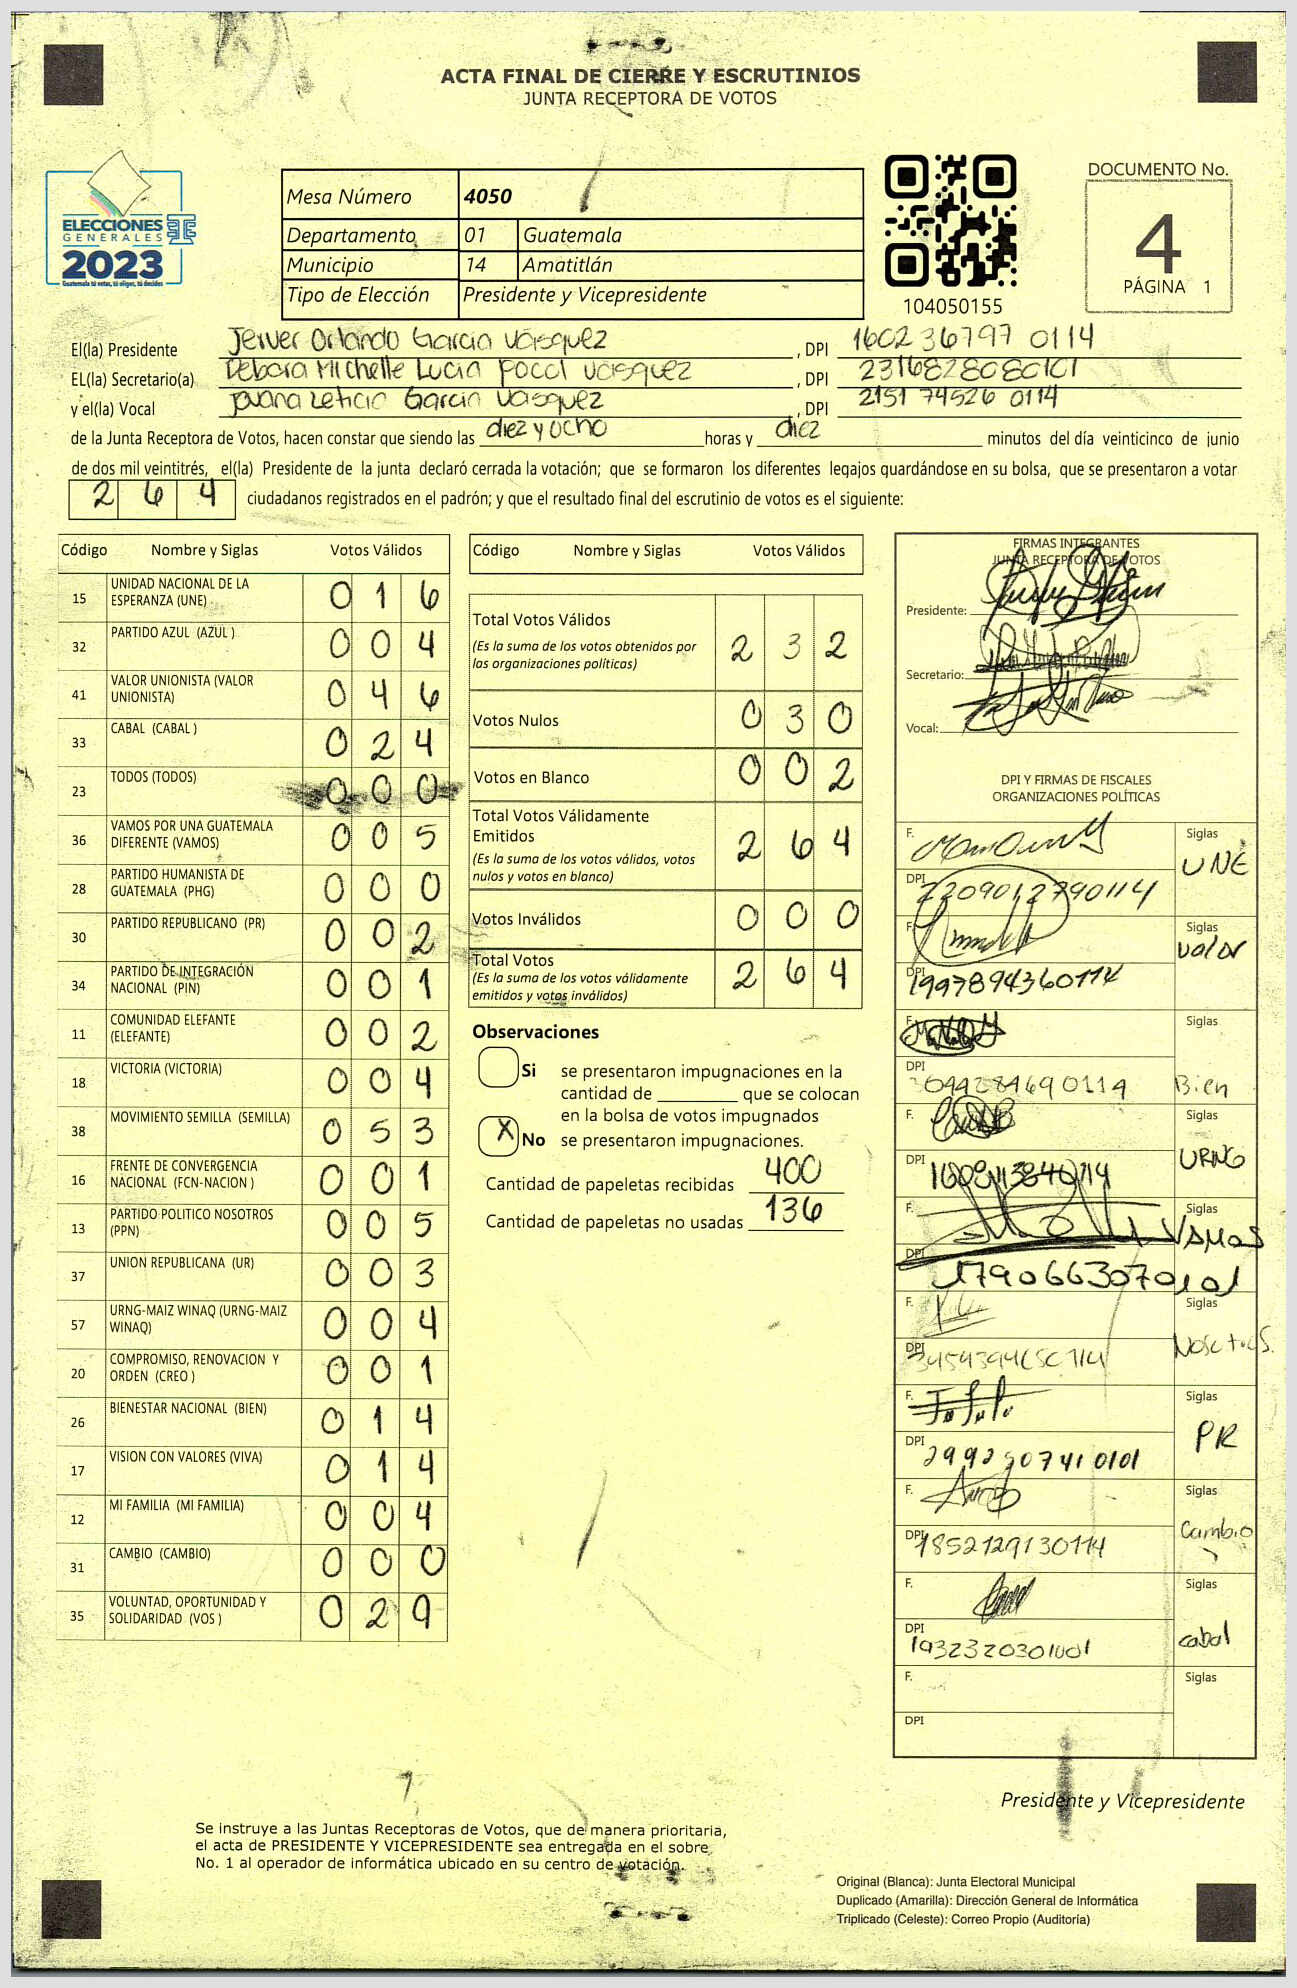 ACTA FINAL DE CIERRE Y ESCRUTINIOS
JUNTA RECEPTORA DE VOTOS
ELECCIONES
GENERALES
2023
Guatemala tú votas, tú eliges, tú decides
Mesa Número 4050
Departamento 01 Guatemala
Municipio 14 Amatitlán
Tipo de Elección Presidente y Vicepresidente
104050155
DOCUMENTO No.
4
PÁGINA 1
El(la) Presidente Jerver Orlando Garcia Vásquez, DPI 1602 36797 0114
EL(la) Secretario(a) Debora Michelle Lucia Pocol Vasquez, DPI 2316828080101
y el(la) Vocal Jovana Leticia Garcia Vasquez, DPI 2151 74526 0114
de la Junta Receptora de Votos, hacen constar que siendo las diez y ocho horas y diez minutos del día veinticinco de junio
de dos mil veintitrés, el(la) Presidente de la junta declaró cerrada la votación; que se formaron los diferentes legajos guardándose en su bolsa, que se presentaron a votar
264 ciudadanos registrados en el padrón; y que el resultado final del escrutinio de votos es el siguiente:
Código Nombre y Siglas Votos Válidos
15 UNIDAD NACIONAL DE LA ESPERANZA (UNE) 016
32 PARTIDO AZUL (AZUL ) 004
41 VALOR UNIONISTA (VALOR UNIONISTA) 046
33 CABAL (CABAL ) 024
23 TODOS (TODOS) 000
36 VAMOS POR UNA GUATEMALA DIFERENTE (VAMOS) 005
28 PARTIDO HUMANISTA DE GUATEMALA (PHG) 000
30 PARTIDO REPUBLICANO (PR) 002
34 PARTIDO DE INTEGRACIÓN NACIONAL (PIN) 001
11 COMUNIDAD ELEFANTE (ELEFANTE) 002
18 VICTORIA (VICTORIA) 004
38 MOVIMIENTO SEMILLA (SEMILLA) 053
16 FRENTE DE CONVERGENCIA NACIONAL (FCN-NACION ) 001
13 PARTIDO POLITICO NOSOTROS (PPN) 005
37 UNION REPUBLICANA (UR) 003
57 URNG-MAIZ WINAQ (URNG-MAIZ WINAQ) 004
20 COMPROMISO, RENOVACION Y ORDEN (CREO ) 001
26 BIENESTAR NACIONAL (BIEN) 014
17 VISION CON VALORES (VIVA) 014
12 MI FAMILIA (MI FAMILIA) 004
31 CAMBIO (CAMBIO) 000
35 VOLUNTAD, OPORTUNIDAD Y SOLIDARIDAD (VOS ) 029
Código Nombre y Siglas Votos Válidos
Total Votos Válidos 232
(Es la suma de los votos obtenidos por
las organizaciones políticas)
Votos Nulos 030
Votos en Blanco 002
Total Votos Válidamente
Emitidos 264
(Es la suma de los votos válidos, votos
nulos y votos en blanco)
Votos Inválidos 000
Total Votos 264
(Es la suma de los votos válidamente
emitidos y votos inválidos)
Observaciones
Si se presentaron impugnaciones en la
cantidad de ________ que se colocan
en la bolsa de votos impugnados
X No se presentaron impugnaciones.
Cantidad de papeletas recibidas 400
Cantidad de papeletas no usadas 136
FIRMAS INTEGRANTES
JUNTA RECEPTORA DE VOTOS
Presidente:
Secretario:
Vocal:
DPI Y FIRMAS DE FISCALES
ORGANIZACIONES POLÍTICAS
F. Siglas UNE
DPI 2209012790114
F. Siglas Valor
DPI 1997894360114
F. Siglas Bien
DPI
F. Siglas URNG
DPI
F. Siglas VAMOS
DPI 1790663070101
F. Siglas Nosotros.
DPI
F. Siglas PR
DPI
F. Siglas Cambio
DPI 1852129130114
F. Siglas cabal
DPI
F. Siglas
DPI
Presidente y Vicepresidente
Se instruye a las Juntas Receptoras de Votos, que de manera prioritaria,
el acta de PRESIDENTE Y VICEPRESIDENTE sea entregada en el sobre
No. 1 al operador de informática ubicado en su centro de votación.
Original (Blanca): Junta Electoral Municipal
Duplicado (Amarilla): Dirección General de Informática
Triplicado (Celeste): Correo Propio (Auditoría)